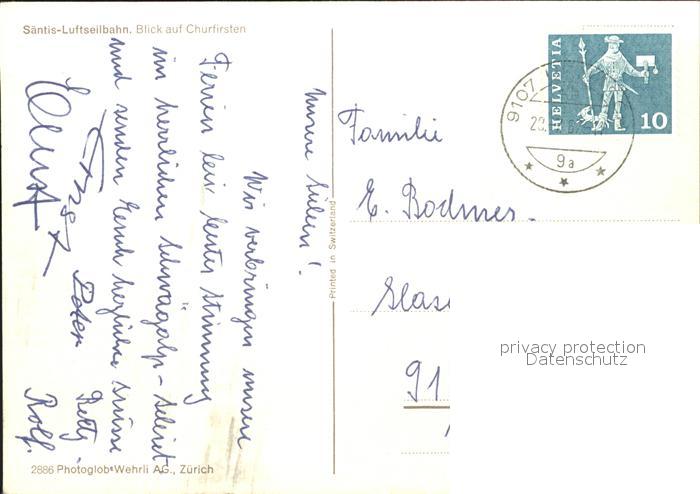 Säntis-Luftseilbahn. Blick auf Churfirsten
Meine Lieben!
Wir verbringen unsere
Ferien bei bester Stimmung
im herrlichen Schwägalp-Gebiet
und senden Euch herzliche Grüsse
Ernst
Peter
Betty
Rolf.
2886 Photoglob-Wehrli AG., Zürich
Printed in Switzerland
HELVETIA
10
9107
20.
9a
Familie
E. Bodmer.
91
privacy protection
Datenschutz